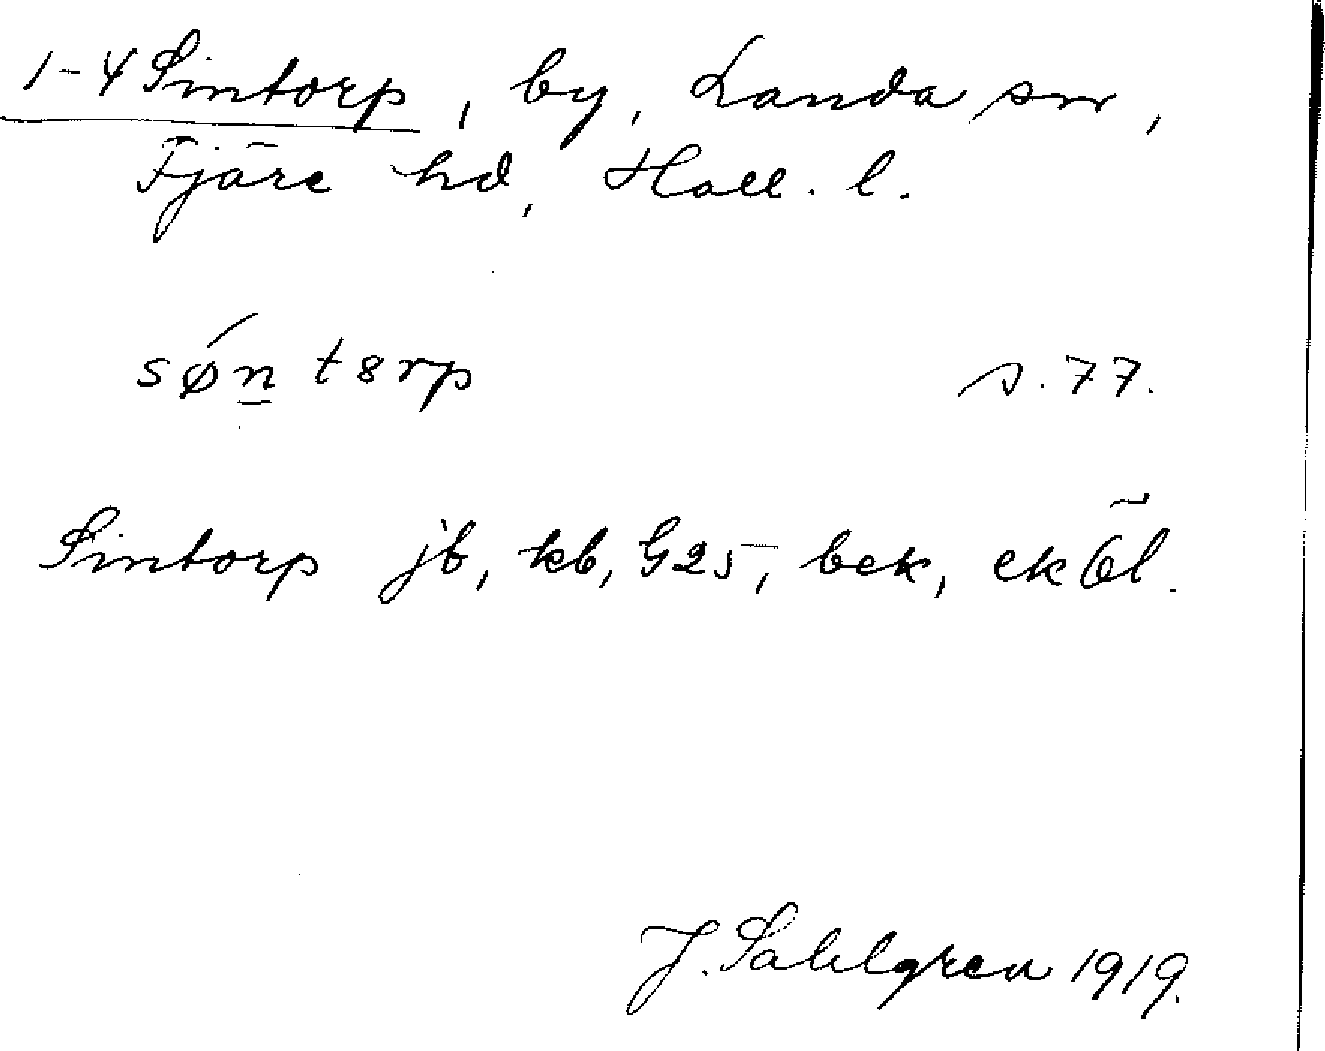 1-4 Sintorp, by, Landa sn,
Fjäre hd, Hall. l.
sǿn̲ t8rp s. 77.
Sintorp jb, kb, G25, bek, eköl.
J. Sahlgren 1919.